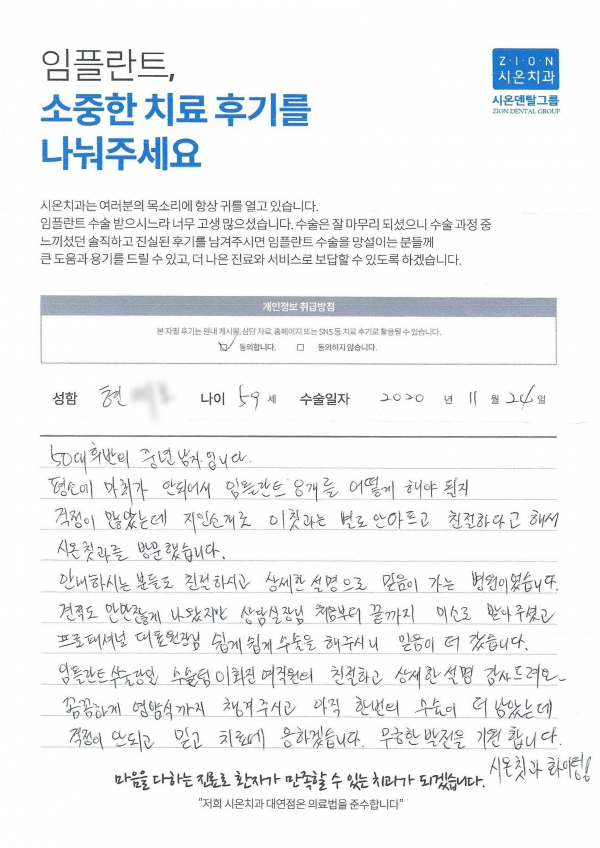 임플란트,
소중한 치료 후기를
나눠주세요
Z·I·O·N
시온치과
시온덴탈그룹
ZION DENTAL GROUP
시온치과는 여러분의 목소리에 항상 귀를 열고 있습니다.
임플란트 수술 받으시느라 너무 고생 많으셨습니다. 수술은 잘 마무리 되셨으니 수술 과정 중
느끼셨던 솔직하고 진실된 후기를 남겨주시면 임플란트 수술을 망설이는 분들께
큰 도움과 용기를 드릴 수 있고, 더 나은 진료와 서비스로 보답할 수 있도록 하겠습니다.
개인정보 취급방침
본 자필 후기는 원내 게시물, 상담 자료, 홈페이지 또는 SNS 등 치료 후기로 활용될 수 있습니다.
☑ 동의합니다. □ 동의하지 않습니다.
성함 현 나이 59 세 수술일자 2020 년 11 월 24 일
50대 후반의 중년 남자입니다.
평소에 마취가 안되어서 임플란트 8개를 어떻게 해야 될지
걱정이 많았는데 지인소개로 이칫과는 별로 안아프고 친절하다고 해서
시온칫과를 방문했습니다.
안내하시는 분들도 친절하시고 상세한 설명으로 믿음이 가는 병원이었습니다.
견적도 만만찮게 나왔지만 상담실장님 처음부터 끝까지 미소로 받아주셨고
프로패셔널 대표원장님 쉽게 쉽게 수술을 해주시니 믿음이 더 갔습니다.
임플란트 수술당일 수술팀 이희진 여직원의 친절하고 상세한 설명 감사드려요~
꼼꼼하게 영양식까지 챙겨주시고 아직 한번의 수술이 더 남았는데
걱정이 안되고 믿고 치료에 응하겠습니다. 무궁한 발전을 기원 합니다.
시온칫과 화이팅!
마음을 다하는 진료로 환자가 만족할 수 있는 치과가 되겠습니다.
"저희 시온치과 대연점은 의료법을 준수합니다"